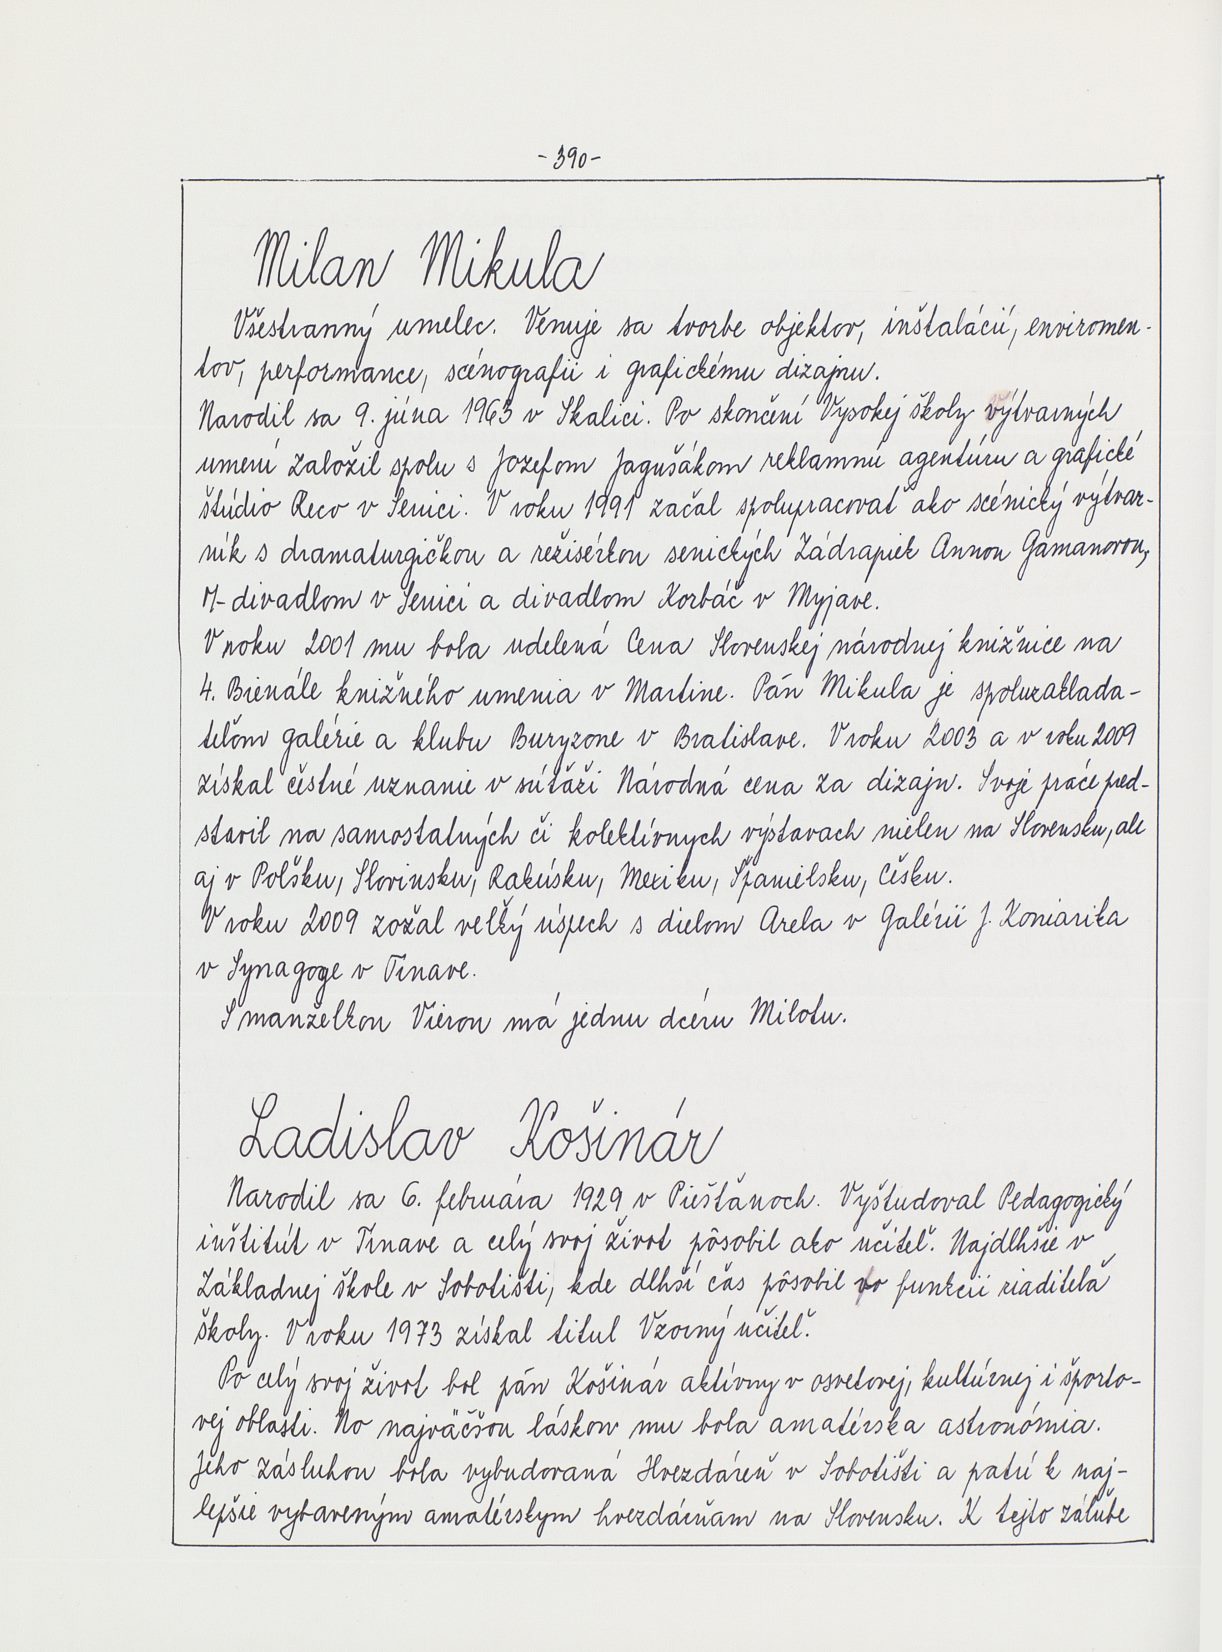 -390-
Milan Mikula
Všestranný umelec. Venuje sa tvorbe objektov, inštalácií, enviromen-
tov, performance, scénografii i grafickému dizajnu.
Narodil sa 9. júna 1963 v Skalici. Po skončení Vysokej školy výtvarných
umení založil spolu s Jozefom Jagušákom reklamnú agentúru a grafické
štúdio Reco v Senici. V roku 1991 začal spolupracovať ako scénický výtvar-
ník s dramaturgičkou a režisérkou senických Zádrapiek Annou Gamanovou,
M-divadlom v Senici a divadlom Korbáč v Myjave.
V roku 2001 mu bola udelená Cena Slovenskej národnej knižnice na
4. Bienále knižného umenia v Martine. Pán Mikula je spoluzaklada-
teľom galérie a klubu Buryzone v Bratislave. V roku 2003 a v roku 2009
získal čestné uznanie v súťaži Národná cena za dizajn. Svoje práce pred-
stavil na samostatných či kolektívnych výstavach nielen na Slovensku, ale
aj v Poľsku, Slovinsku, Rakúsku, Mexiku, Španielsku, Česku.
V roku 2009 zožal veľký úspech s dielom Arela v Galérii J. Koniarika
v Synagoge v Trnave.
S manželkou Vierou má jednu dcéru Milotu.
Ladislav Košinár
Narodil sa 6. februára 1929 v Piešťanoch. Vyštudoval Pedagogický
inštitút v Trnave a celý svoj život pôsobil ako učiteľ. Najdlhšie v
Základnej škole v Sobotišti, kde dlhší čas pôsobil vo funkcii riaditeľa
školy. V roku 1973 získal titul Vzorný učiteľ.
Po celý svoj život bol pán Košinár aktívny v osvetovej, kultúrnej i športo-
vej oblasti. No najväčšou láskou mu bola amatérska astronómia.
Jeho zásluhou bola vybudovaná Hvezdáreň v Sobotišti a patrí k naj-
lepšie vybaveným amatérskym hvezdárňam na Slovensku. K tejto záľube